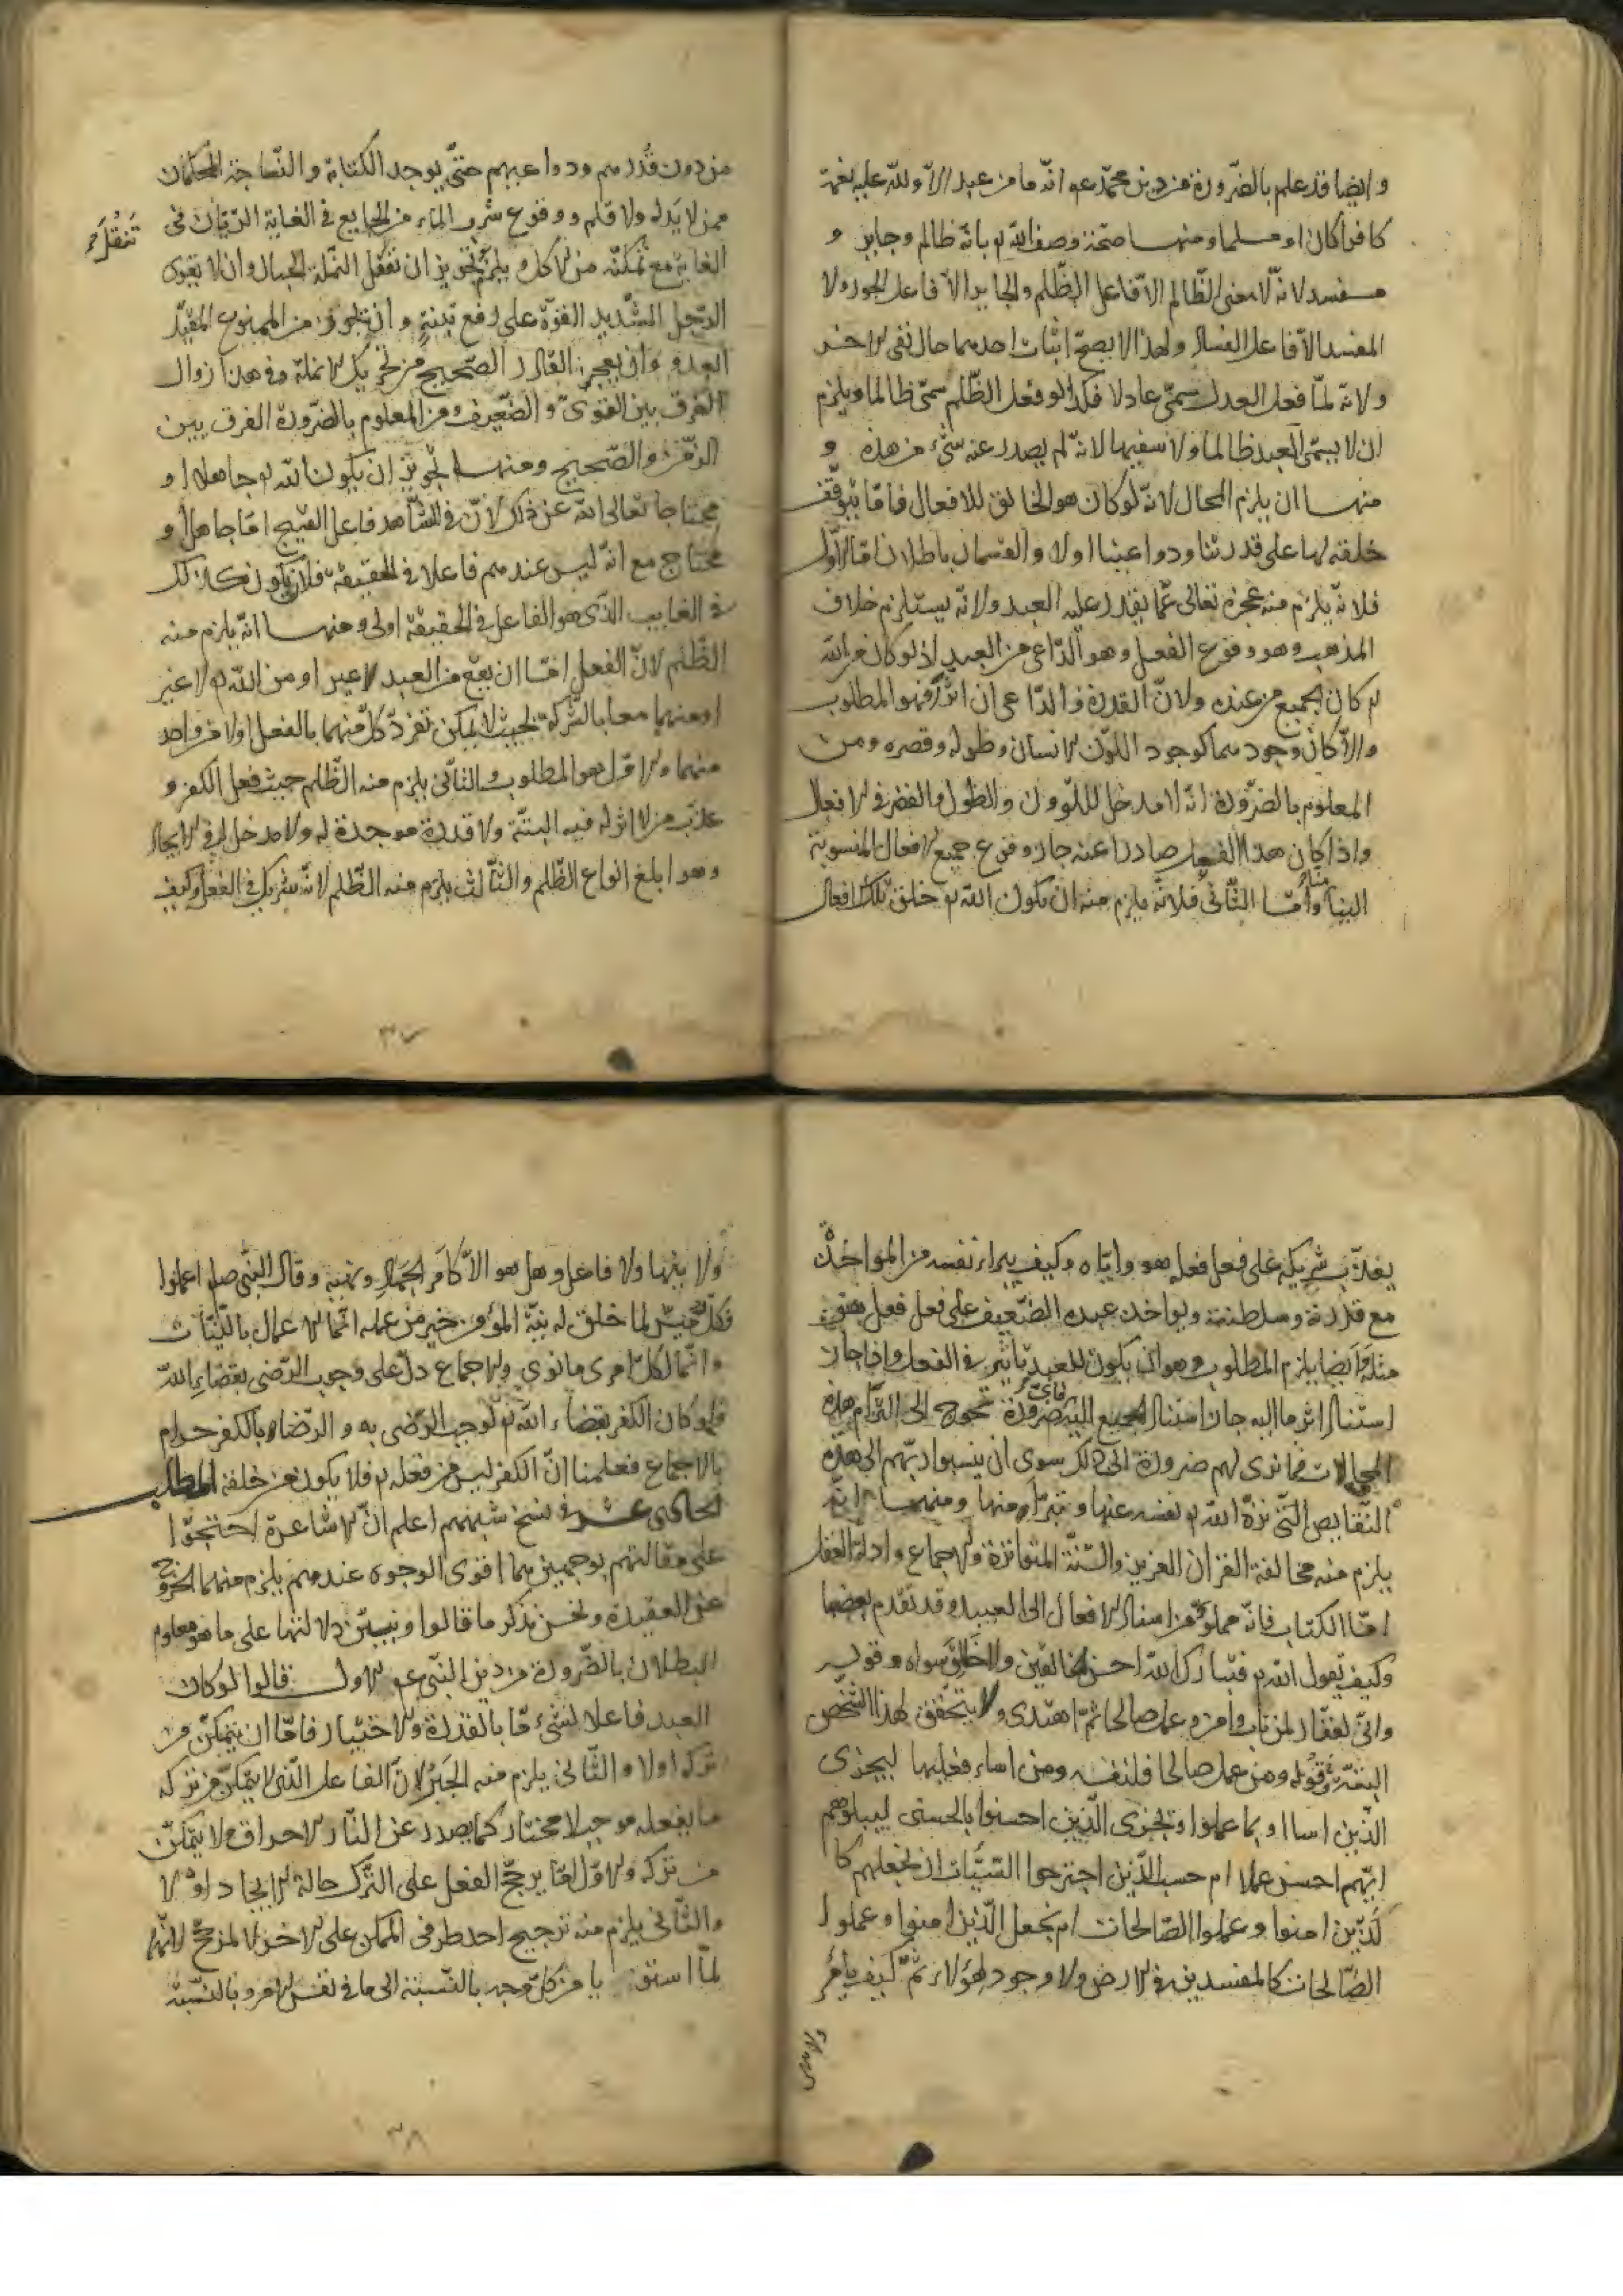 وايضا قد علم بالضرورة من دين محمد عم انه ما من عبد الا ولله عليه نعمة
كافرا كان او مسلما ومنها صحة وصف الله تع بانه ظالم وجاير و
مفسد لانه لا معنى للظالم الا فاعل الظلم والجاير الا فاعل الجور ولا
المفسد الا فاعل الفساد ولهذا لا يصح اثبات احدهما حال نفى الاخر
ولانه لما فعل العدل سمى عادلا فكذا لو فعل الظلم سمى ظالما ويلزم
ان لا يسمى العبد ظالما ولا سفيها لانه لم يصدر عنه شىء من هذه و
منها ان يلزم المحال لانه لو كان هو الخالق للافعال فاما يتوقف
خلقه لها على قدرتنا ودواعينا اولا والقسمان باطلان اما الاول
فلانه يلزم منه عجزه تعالى عما يقدر عليه العبد ولانه يستلزم خلاف
المذهب وهو وقوع الفعل وهو الداعى من العبد اذ لو كان من الله
تع كان الجميع من عنده ولان القدرة والداعى ان اثرا فهو المطلوب
والا كان وجودهما كوجود اللون الانسان وطوله وقصره ومن
المعلوم بالضرورة انه لا مدخل لللون والطول والقصر فى الافعال
واذا كان هذا الفعل صادرا عنه جاز وقوع جميع الافعال المنسوبة
الينا منا واما الثانى فلانه يلزم منه ان يكون الله تع خلق تلك الافعال
من دون قدرهم ودواعيهم حتى يوجد الكتابة والنساجة المحكمتان
ممن لا يد له ولا قلم ووقوع شرب الماء من الجايع فى الغاية الريان فى
تنقل
الغاية مع تمكنه من الاكل ويلزم تجويز ان تنقل النملة الجبال وان لا يقوى
الرجل الشديد القوة على رفع تبنة وان يجوز من الممنوع المقيد
العدو وان يعجز القادر الصحيح من تحريك الانملة وفى هذا زوال
الفرق بين القوى والضعيف ومن المعلوم بالضرورة الفرق بين
الزمن والصحيح ومنها تجويز ان يكون الله تع جاهلا او
محتاجا تعالى الله عن ذلك لان فى الشاهد فاعل القبيح اما جاهل او
محتاج مع انه ليس عندهم فاعلا فى الحقيقة فلان يكون كذلك
فى الغايب الذى هو الفاعل فى الحقيقة اولى ومنها انه يلزم منه
الظلم لان الفعل اما ان يقع من العبد لا غير او من الله تع لا غير
او منهما معا بالشركة بحيث لا يمكن تفرد كل منهما بالفعل اولا من واحد
منهما والاول هو المطلوب والثانى يلزم منه الظلم حيث فعل الكفر و
عذب من لا اثر له فيه البتة ولا قدرة موجدة له ولا مدخل له فى الايجاد
وهو ابلغ انواع الظلم والثالث يلزم منه الظلم لانه شريك فى الفعل وكيف
٣٧
يعذب شريكه على فعل فعله هو واياه وكيف يبراء نفسه من المواخذة
مع قدرته وسلطنته ويواخذ عبده الضعيف على فعل فعل هو
مثله وايضا يلزم المطلوب وهو ان يكون للعبد تاثير فى الفعل واذا جاز
استناد اثر ما اليه جاز استناد الجميع اليه فاى ضرورة تحوج الى التزام هذه
المحالات فما نرى لهم ضرورة الى ذلك سوى ان ينسبوا ربهم الى هذه
النقايص التى نزه الله تع نفسه عنها وتبرأ منها ومنها انه
يلزم منه مخالفة القران العزيز والسنة المتواترة والاجماع وادلة العقل
اما الكتاب فانه مملو من اسناد الافعال الى العبيد وقد تقدم بعضها
وكيف يقول الله تع فتبارك الله احسن الخالقين ولا خالق سواه وقوله
وانى لغفار لمن تاب وامن وعمل صالحا ثم اهتدى ولا يتحقق لهذا الشخص
البتة وقوله ومن عمل صالحا فلنفسه ومن اساء فعليها ليجزى
الذين اساءوا بما عملوا وتجزى الذين احسنوا بالحسنى ليبلوهم
ايهم احسن عملا ام حسب الذين اجترحوا السيئات ان نجعلهم كا
لذين امنوا وعملوا الصالحات ام نجعل الذين امنوا وعملوا
الصالحات كالمفسدين فى الارض ولا وجود لهؤلاء ثم كيف يأمر
ولا ينهى
ولا ينها ولا فاعل وهل هو الا كامر الجماد ونهيه وقال النبى صلع اعملوا
فكل ميسر لما خلق له نية المؤمن خير من عمله انما الاعمال بالنيات
وانما لكل امرى ما نوى والاجماع دل على وجوب الرضى بقضاء الله
فلو كان الكفر بقضاء الله تع لوجب الرضى به والرضاء بالكفر حرام
بالاجماع فعلمنا ان الكفر ليس من فعله تع فلا يكون من خلقه المطلب
الحادى عشر فى نسخ شبههم اعلم ان الاشاعرة احتجوا
على مقالتهم بوجهين هما اقوى الوجوه عندهم يلزم منهما الخروج
عن العقيدة ونحن نذكر ما قالوا ونبين دلالتها على ما هو معلوم
البطلان بالضرورة من دين النبى عم الاول قالوا لو كان
العبد فاعلا لشىء ما بالقدرة والاختيار فاما ان يتمكن من
تركه اولا والثانى يلزم منه الجبر لان الفاعل الذى لا يتمكن من ترك
ما يفعله موجب لا مختار كما يصدر عن النار الاحراق ولا يتمكن
من تركه والاول اما يرجح الفعل على الترك حالة الايجاد او لا
والثانى يلزم منه ترجيح احد طرفى الممكن على الاخر لا لمرجح لانها
لما استويا من كل وجه بالنسبة الى ما فى نفس الامر وبالنسبة
٣٨